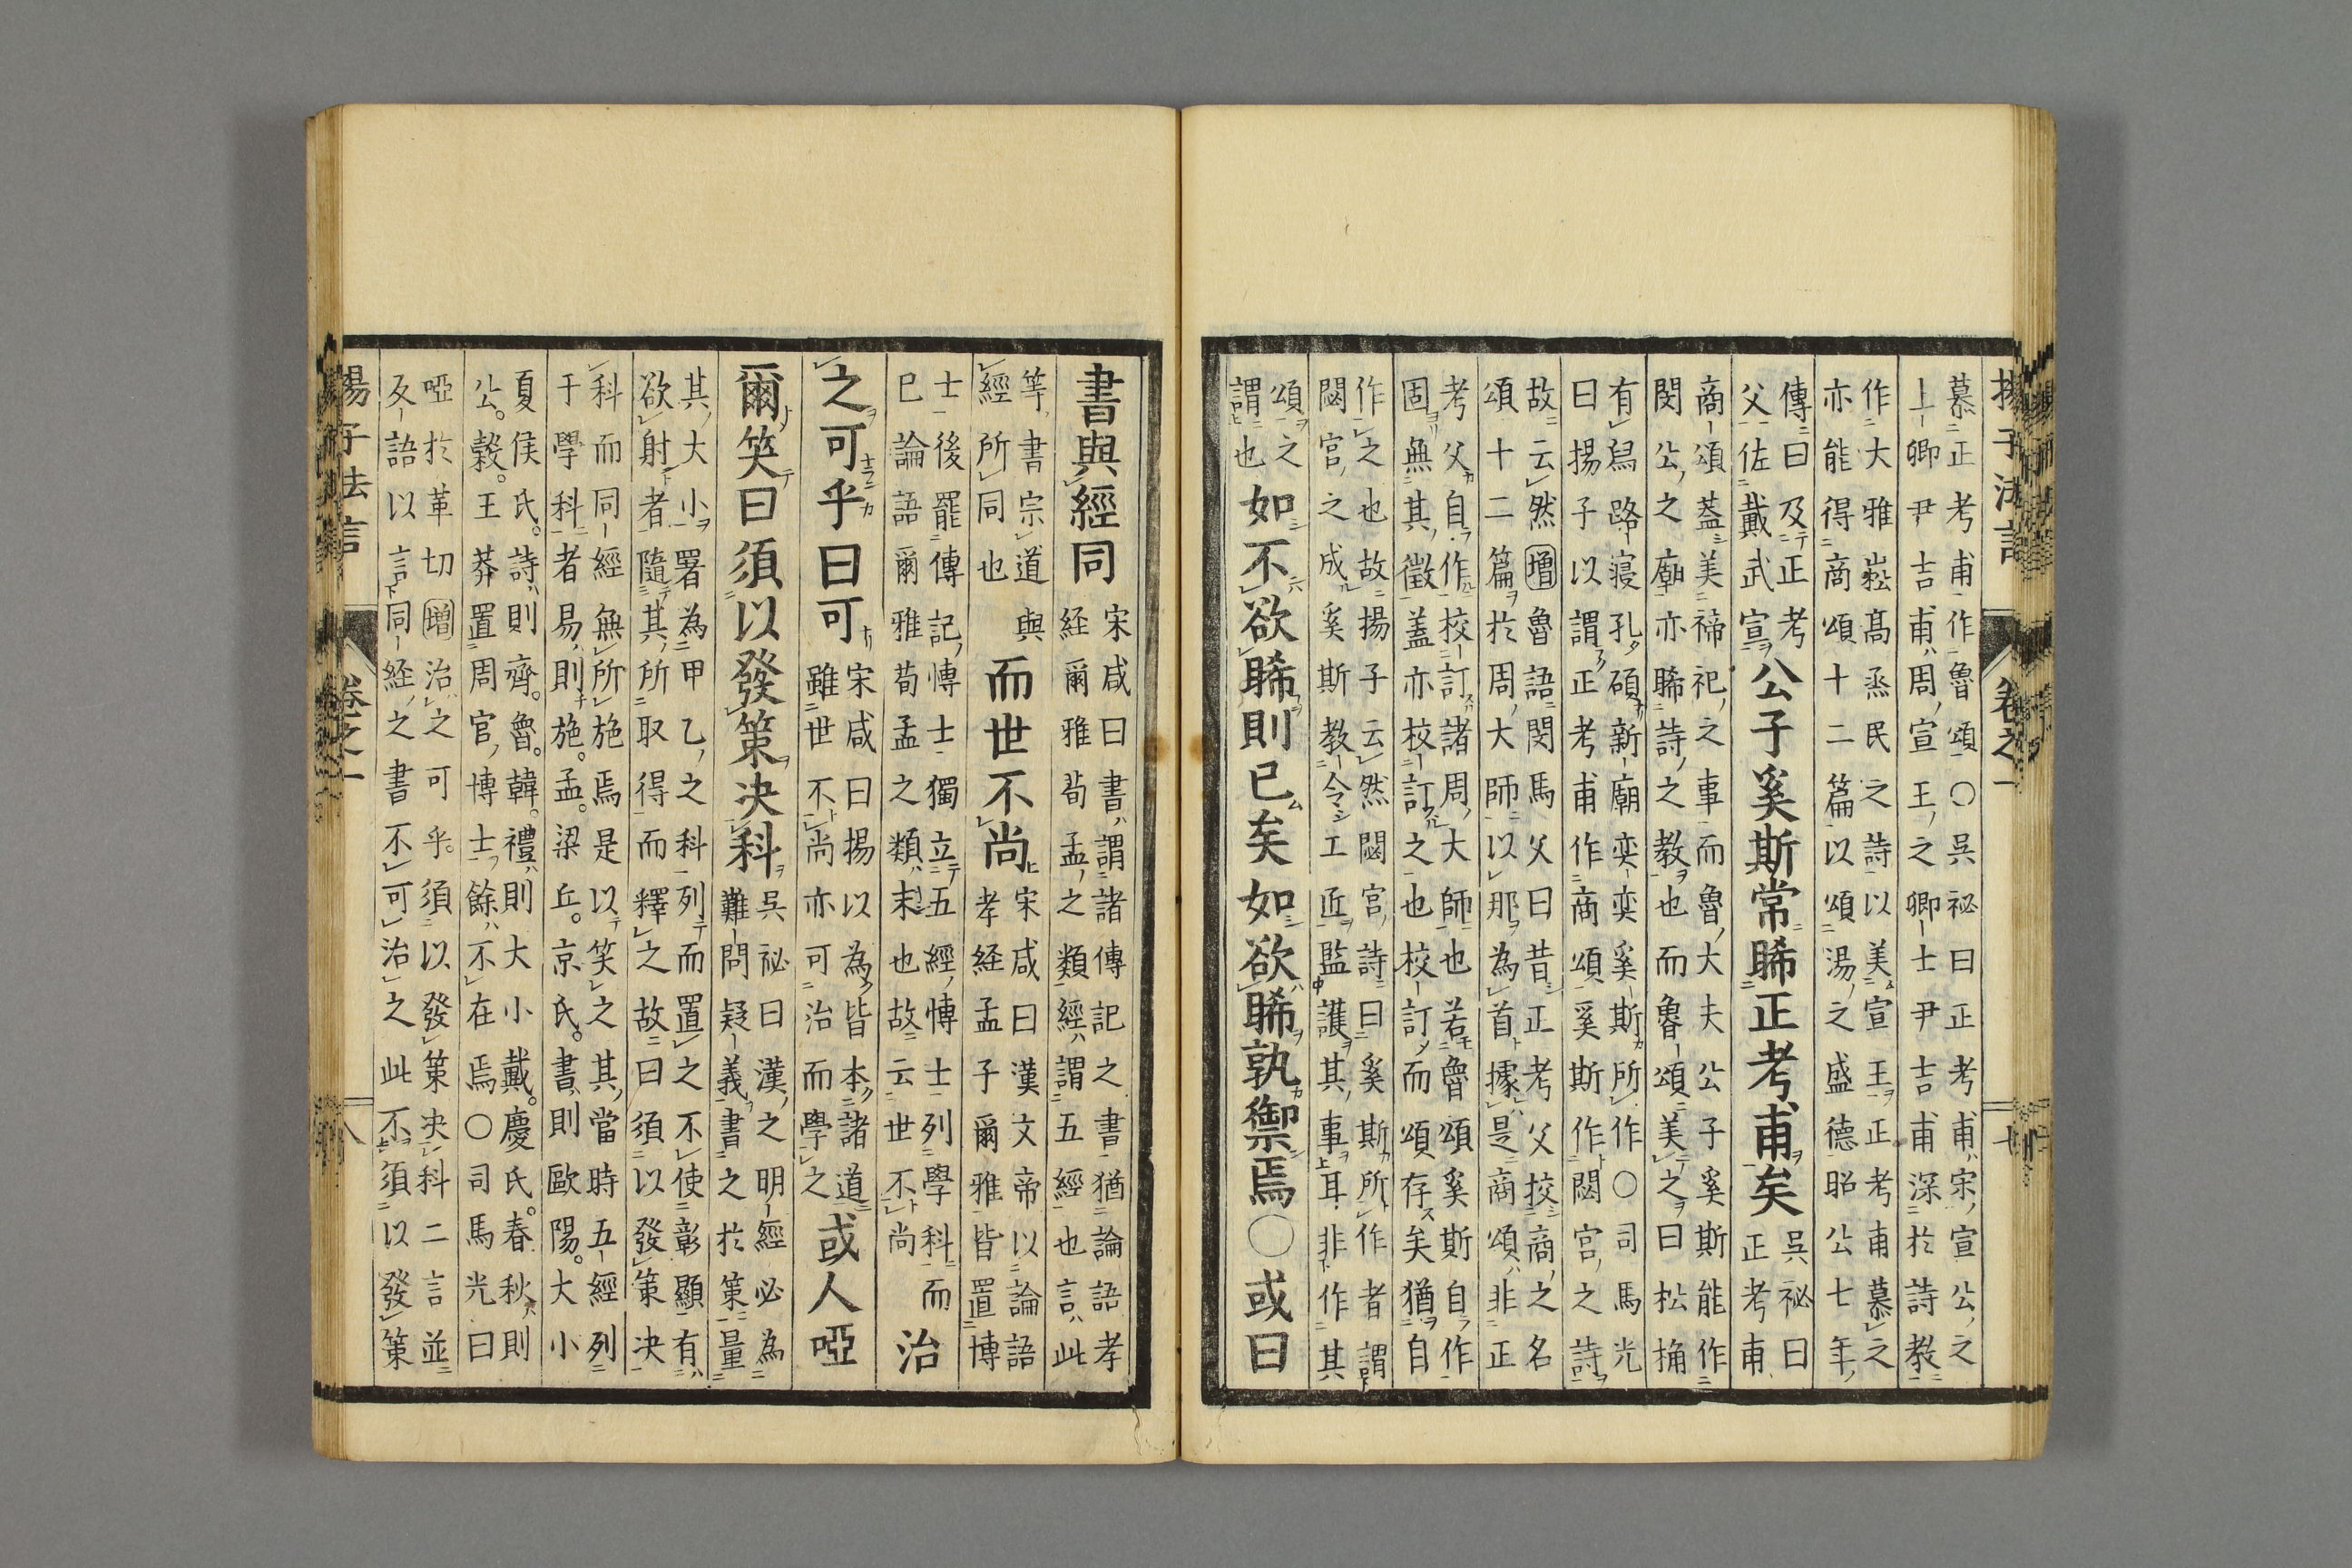 揚子法言　卷之一　七
慕正考甫作魯頌〇吳祕曰正考甫宋宣公之
上卿尹吉甫周宣王之卿士尹吉甫深於詩教
作大雅崧高烝民之詩以美宣王正考甫慕之
亦能得商頌十二篇以頌湯之盛德昭公七年
傳曰及正考
父佐戴武宣
公子奚斯常睎正考甫矣
吳祕曰
正考甫
商頌蓋美禘祀之事而魯大夫公子奚斯能作
閔公之廟亦睎詩之教也而魯頌美之曰松桷
有舄路寢孔碩新廟奕奕奚斯所作〇司馬光
曰揚子以謂正考甫作商頌奚斯作閟宮之詩
故云然增魯語閔馬父曰昔正考父挍商之名
頌十二篇於周大師以那為首據是商頌非正
考父自作校訂諸周大師也若魯頌奚斯自作
固無其徵蓋亦校訂之也校訂而頌存矣猶自
作之也故揚子云然閟宮詩曰奚斯所作者謂
閟官之成奚斯教令工匠監護其事耳非作其
頌之
謂也
如不欲睎則已矣如欲睎孰禦焉〇或曰
書與經同
宋咸曰書謂諸傳記之書猶論語孝
経爾雅荀孟之類經謂五經也言此
等書宗道與
經所同也
而世不尚
宋咸曰漢文帝以論語
孝経孟子爾雅皆置博
士後罷傳記博士獨立五經博士列學科而
已論語爾雅荀孟之類末也故云世不尚
治
之可乎曰可
宋咸曰揚以為皆本諸道
雖世不尚亦可治而學之
或人啞
爾笑曰須以發策决科
吳祕曰漢之明經必為
難問疑義書之於策量
其大小署為甲乙之科列而置之不使彰顯有
欲射者隨其所取得而釋之故曰須以發策决
科而同經無所施焉是以笑之其當時五經列
于學科者易則施。孟。梁丘。京氏。書則歐陽。大小
夏侯氏。詩則齊。魯。韓。禮則大小戴。慶氏。春秋則
公。穀。王莽置周官博士餘不在焉〇司馬光曰
啞於革切增治之可乎。須以發策决科二言並
反語以言同経之書不可治之此不須以發策
揚子法言　卷之一　八